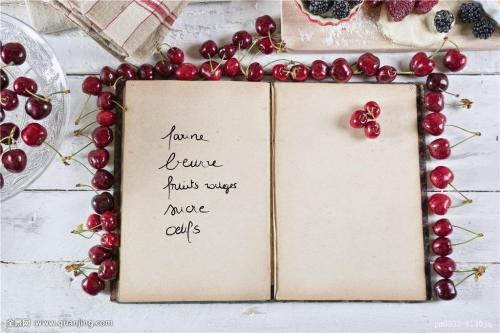 farine
beurre
fruits rouges
sucre
oeufs
全景网 www.quanjing.com